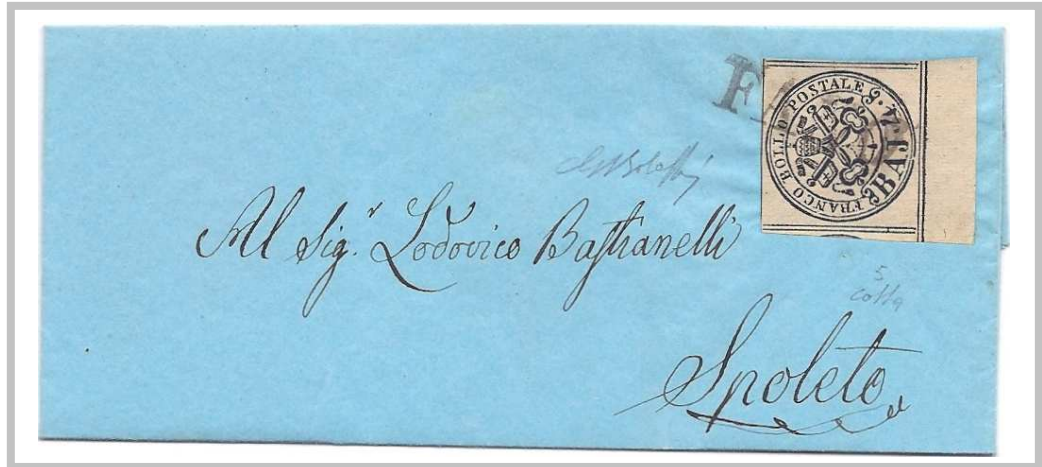 FRANCO BOLLO POSTALE
BAJ
Al Sig.r Lodovico Bastianelli
Spoleto